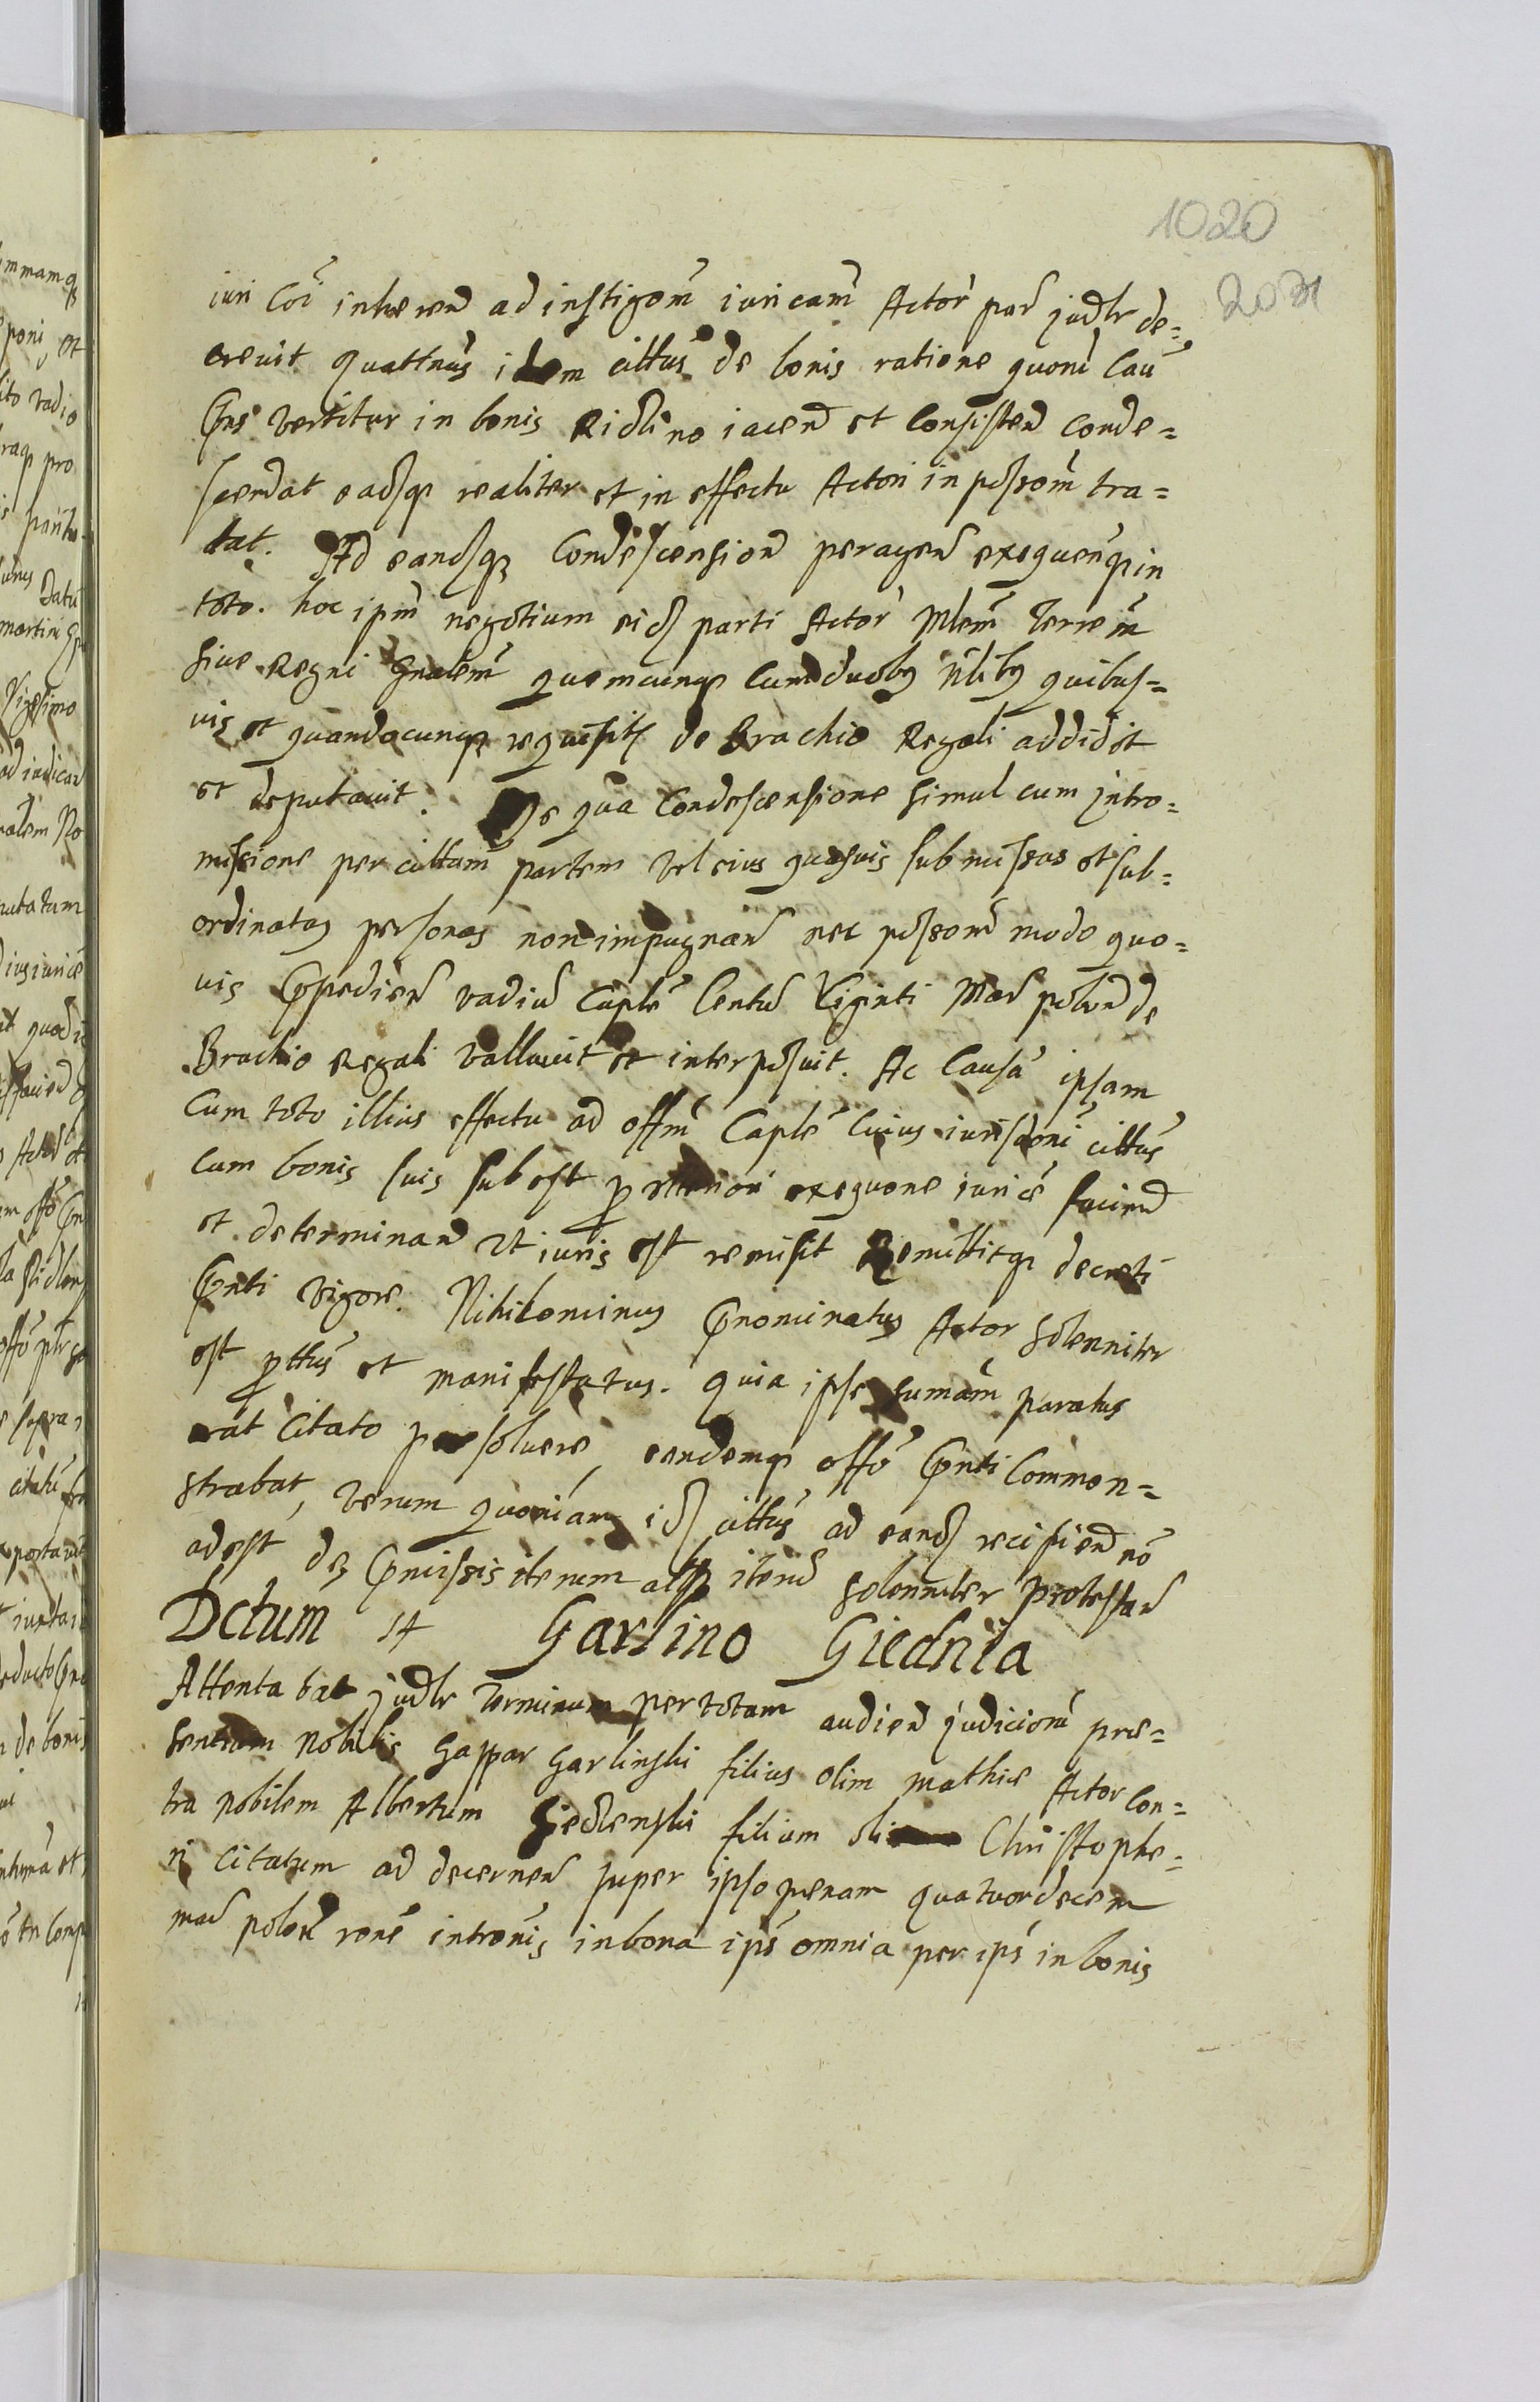 1020
2031
iuri Coi inheren ad instigom iuricam Actor par judlr de=
crevit quattnus idem cittus de bonis ratione quoru Cau
pns vertitur in bonis Ridlino iacen et Consisten conde=
scendat eadsq realiter et in effectu Actori in possom tra=
dat. Ad eandsq Condescension peragen exequenq in
toto. hoc ipm negotium eids parti Actor Mlem Terrem
sive Regni Gnalem quemcunq cum duobus Nlibus quibus=
vis et quandocunq requisits de Brachio Regali addidit
et deputavit. De qua Condescensione simul cum intro=
missione per cittam partem vel eius quasvis submissas et sub=
ordinatas personas non impugnan nec possom modo quo=
vis Impedien vadiu Caple Centu Viginti Mar polon de
Brachio Regali vallavit et interposuit. Ac Causa ipsam
Cum toto illius effectu ad offm Caple Cuius iurisdoni cittus
Cum bonis suis subest p ulteriori exequone iurice facien
et determinan Ut iuris est remisit Remittitq decreti
pnti vigore. Nihilominus pnominatus Actor solenniter
est pttus et manifestatus. quia ipse sumam paratus
erat Citato persolvere, eandemq offo pnti Common=
strabat, verum quoniam ids cittus ad eands recipien no
adest de pmissis iterum atq iteru solenniter protestan
Dctum st Garlino Giednia
Attentabat judlr Terminum per totam audien judicioru præ=
sentium Nobilis Gaspar Garlinski filius olim Mathiæ Actor Con=
tra Nobilem Albertum Siedlenski filium olim Christophe=
ri Citatum ad decernen super ipso pænam quatuordecem
mar polon rone intromis in bona ips omnia per ips in bonis